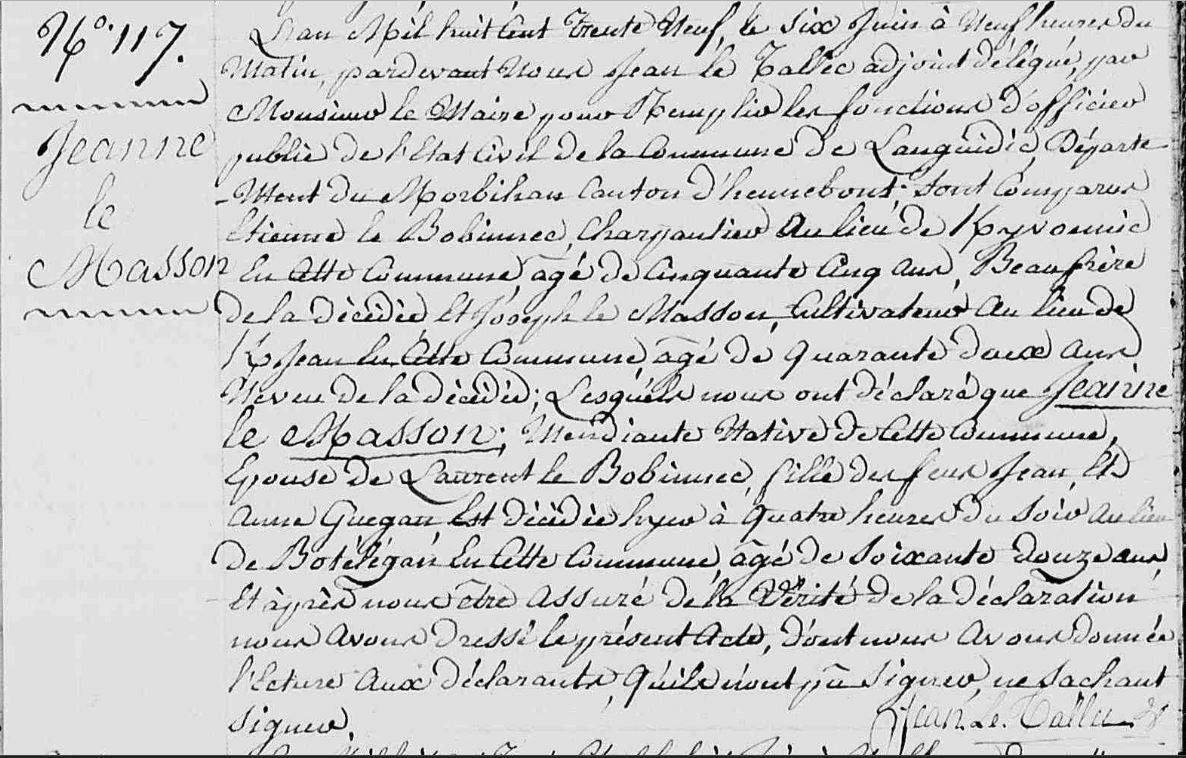 N°. 117.
Jeanne
le
Masson
L'an Mil huit Cent Trente Neuf, le Six Juin à Neuf heures du
Matin, pardevant Nous Jean le Tallec adjoint délégué, par
Monsieur le Maire pour Remplir les fonctions d'officier
public de l'Etat Civil de la Commune de Languidic, Départe
-Ment du Morbihan Canton d'hennebont; Sont Comparus
Etienne le Bobinnec, Charpantier Au lieu de
En Cette Commune, agé de Cinquante Cinq ans, Beaufrère
de la décédée Et Joseph le Masson, Cultivateur Au lieu de
KJean En Cette Commune, agé de Quarante deux ans
Néveu de la décédée; Lesquels nous ont déclaré que Jeanne
le Masson; Mendiante Native de Cette Commune,
Epouse de Laurent le Bobinnec, fille des feus Jean, Et
Anne Guegan Est décédée hyer à Quatre heures du Soir Au lieu
de En Cette Commune, agé de Soixante douze ans,
Et àprès nous être Assuré de la Vérité de la déclaration
nous Avons Dressé le présent Acte, D'ont nous Avons donnée
l'Ecture Aux déclarants, Qu'ils n'ont pû Signer, ne Sachant
Signer,
Jean Le Tallec